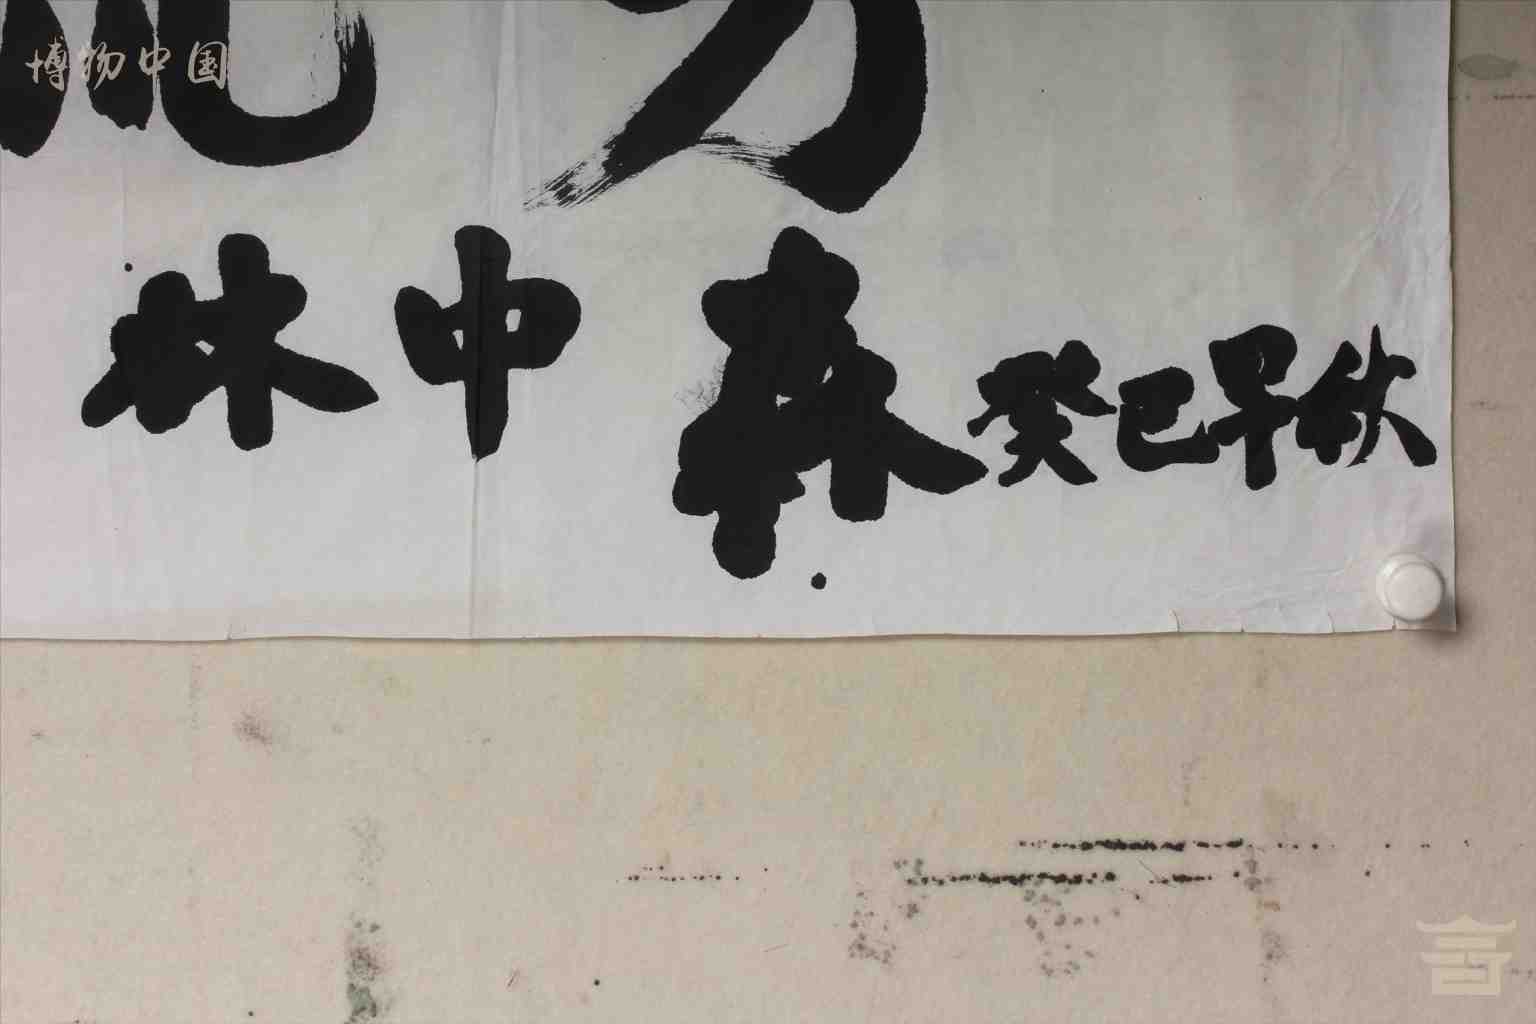 博物中国
林中森癸巳早秋